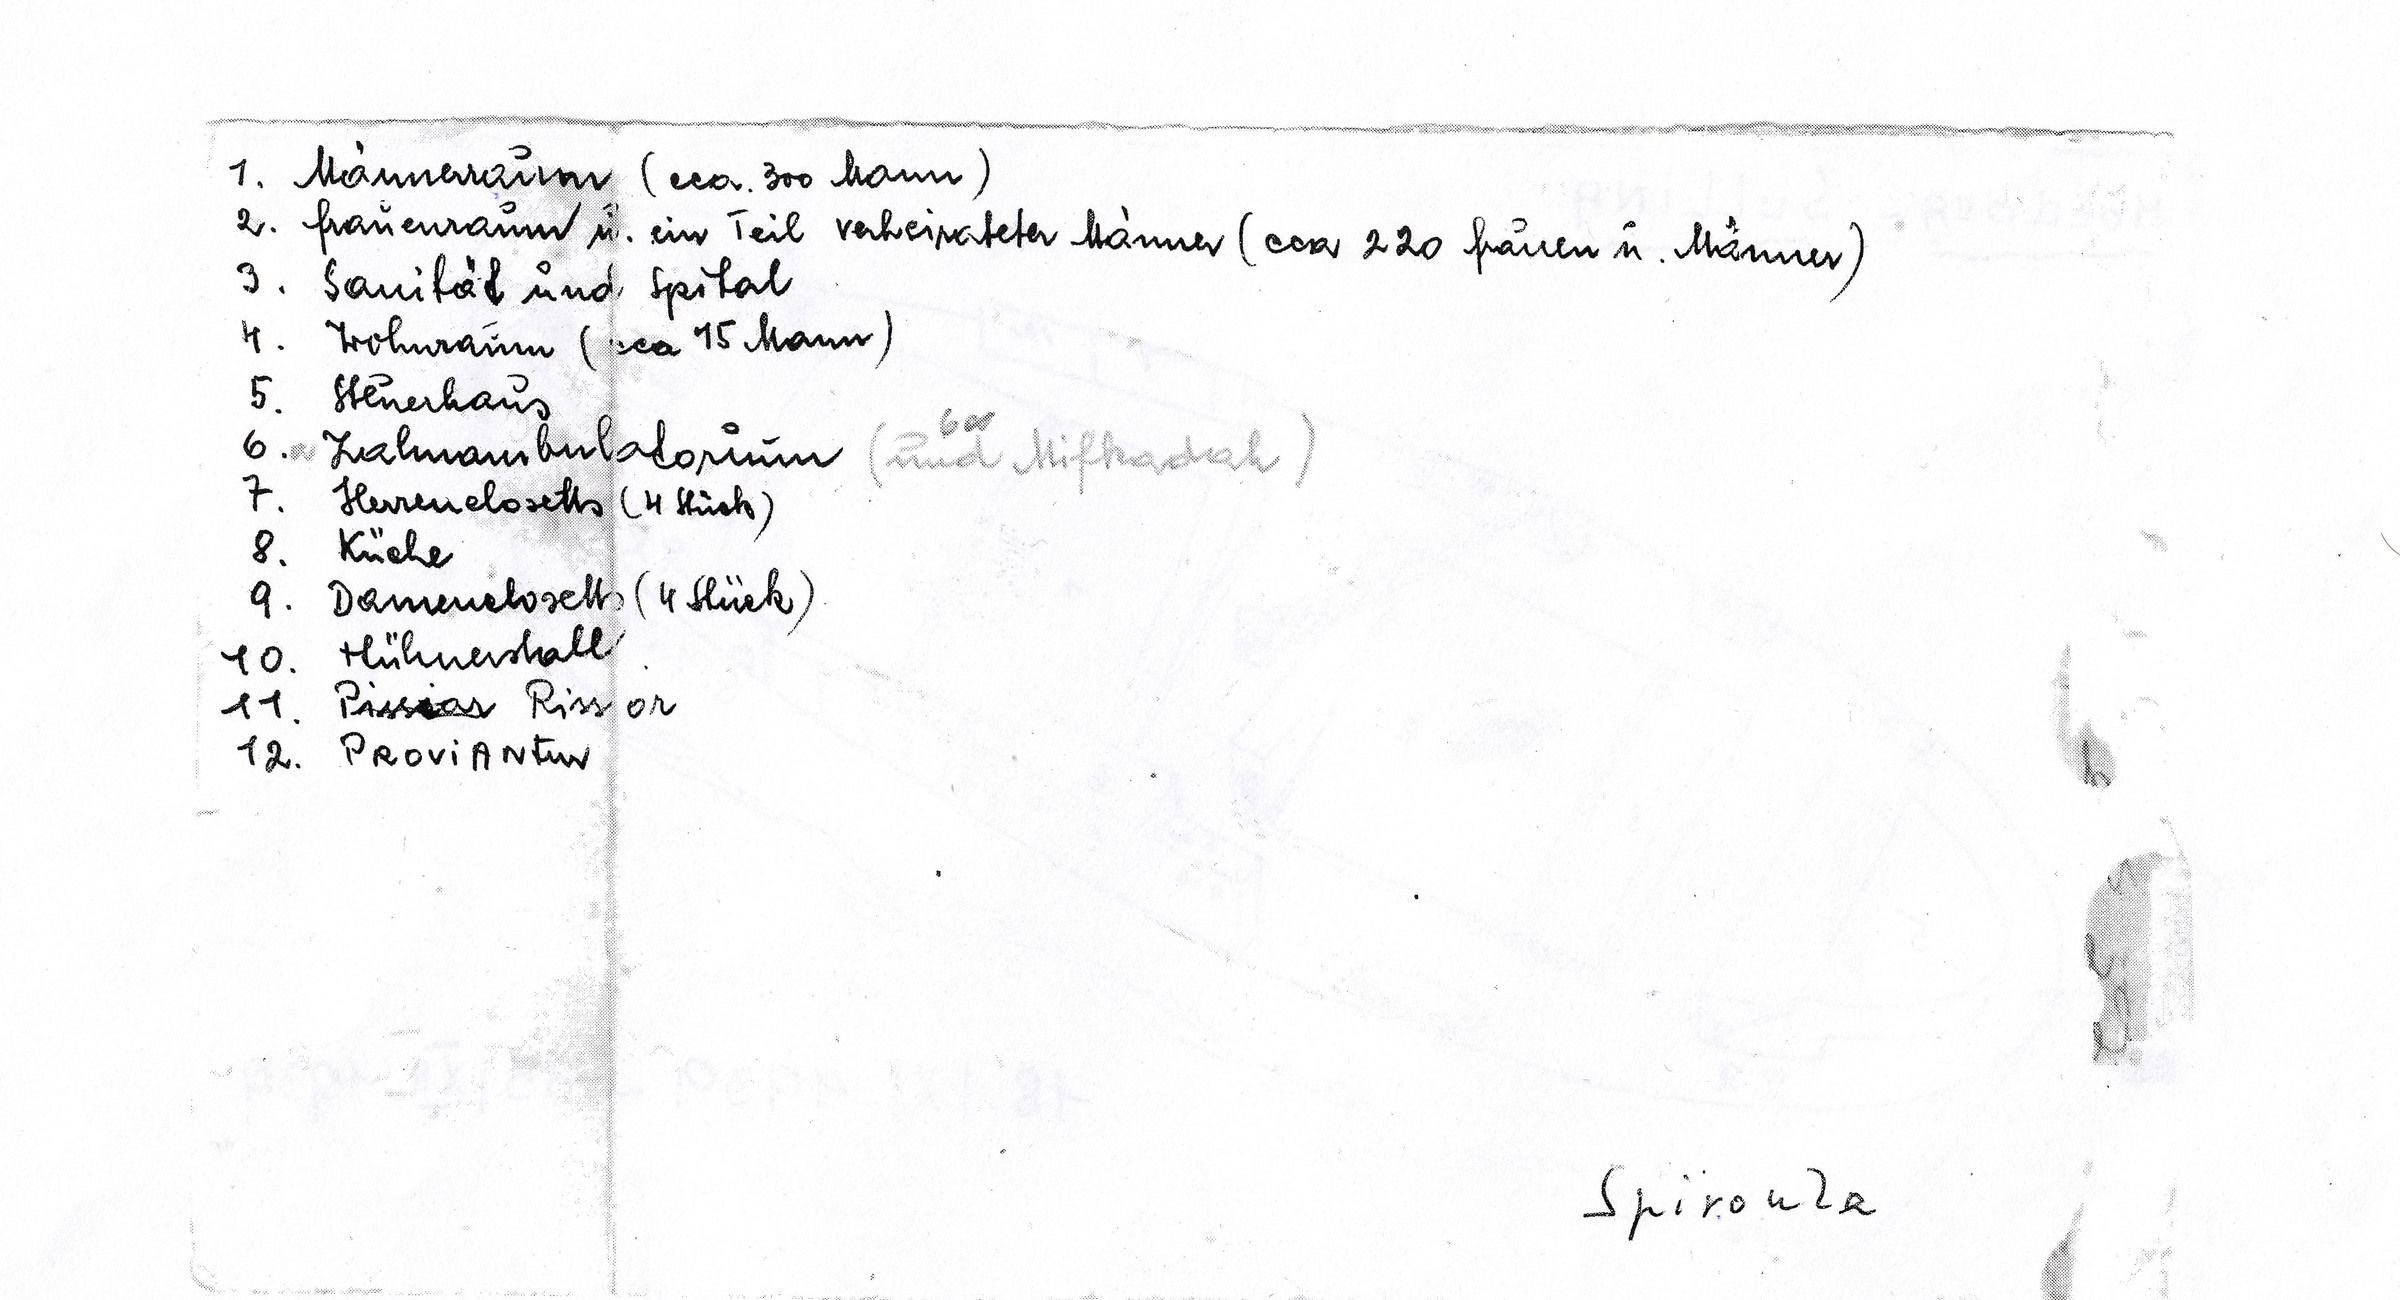 1. Männerraum (cca. 300 Mann)
2. Frauenraum u. ein Teil verheirateter Männer (cca 220 Frauen u. Männer)
3. Sanität und Spital
4. Wohnraum (cca 15 Mann)
5. Steuerhaus
6. Zahnambulatorium (und Mifkadah)
7. Herrenclosetts (4 Stück)
8. Küche
9. Damenclosetts (4 Stück)
10. Hühnerstall
11. Pissoar Pissor
12. PROViANTur
Spiroula